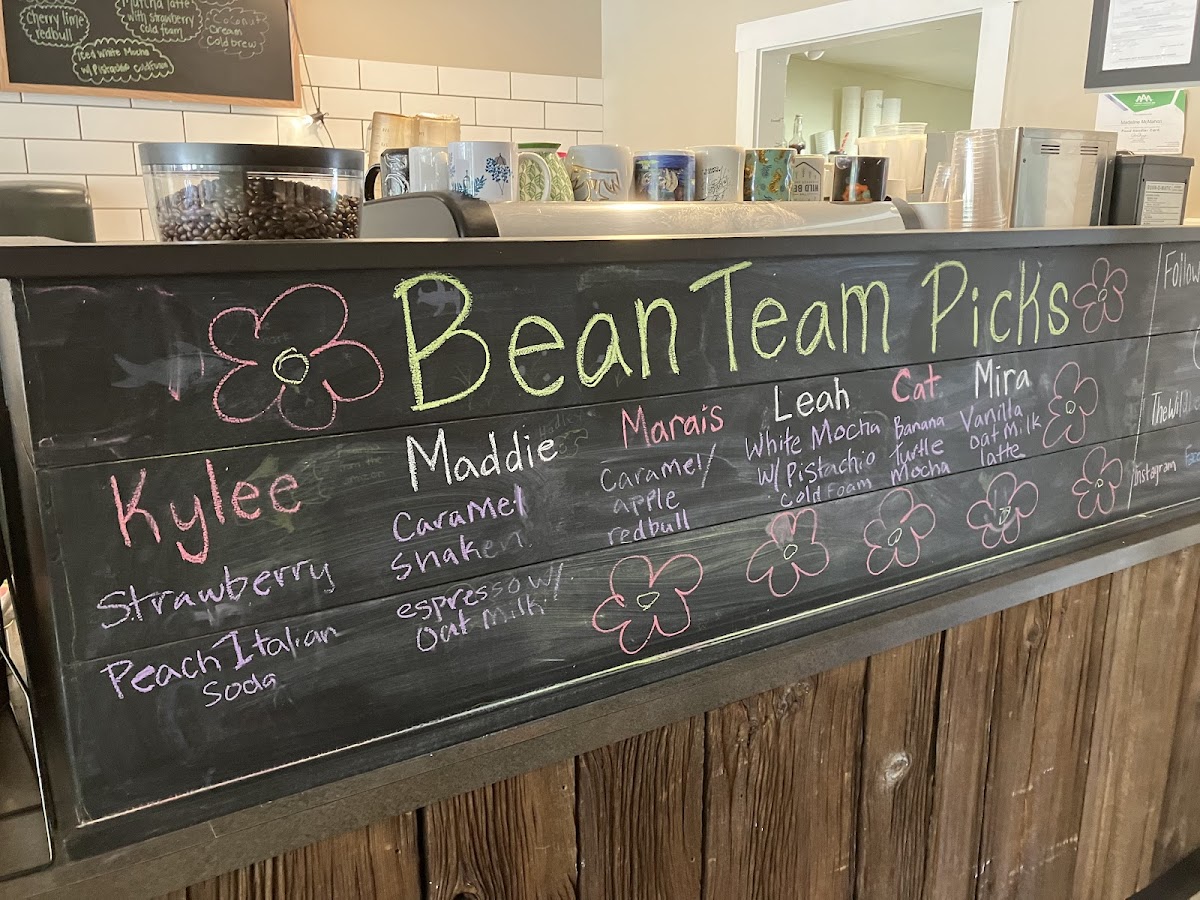 Cherry lime
redbull
Matcha latte
with strawberry
cold foam
Coconut
Cream
Cold brew
Iced White Mocha
w/ Pistachio Coldfoam
Bean Team Picks
Kylee
Strawberry
Peach Italian
Soda
Maddie
Caramel
shaken
espresso w/
Oat milk
Marais
Caramel/
apple
redbull
Leah
White Mocha
w/ Pistachio
Cold Foam
Cat
Banana
turtle
Mocha
Mira
Vanilla
Oat Milk
latte
Follow
TheWild
Instagram
WILD BE